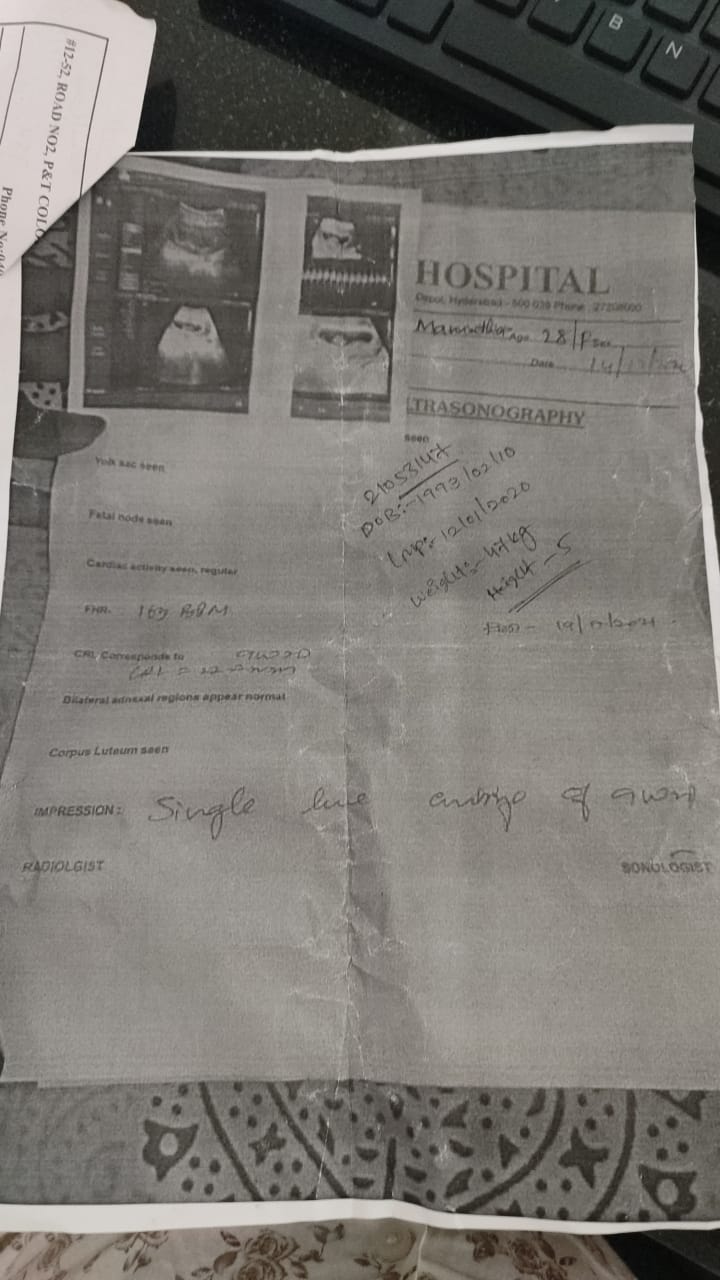 B
N
#12-52, ROAD NO2, P&T COLO
Phone No:040
HOSPITAL
Depot, Hyderabad - 500 039 Phone : 27208000
Age 28/F Sex
Date
TRASONOGRAPHY
seen
Yolk sac seen
21053147
DOB:- 1993/02/10
Fetal node seen
Lmp:- 12/01/2020
Cardiac activity seen, regular
weight:- 47kg
Height - 5
FHR. 163 BPM
CRL Corresponds to
CRL =
Bilateral adnexal regions appear normal
Corpus Luteum seen
IMPRESSION : Single live embryo of
RADIOLGIST
SONOLOGIST